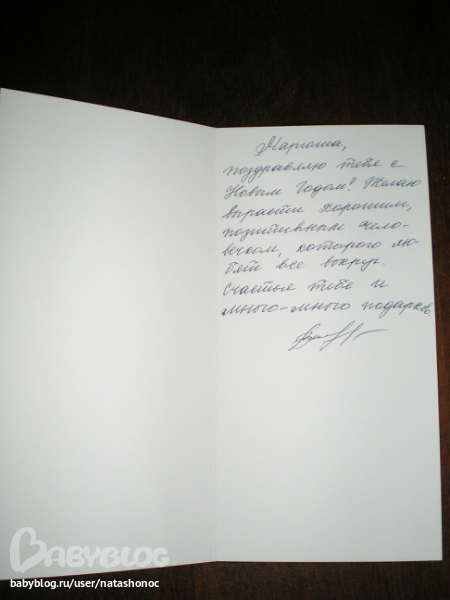 Марюша,
поздравляю тебя с
Новым Годом! Желаю
вырасти хорошим,
позитивным чело-
вечком, которого лю-
бят все вокруг.
Счастья тебе и
много-много подарков.
BABYBLOG
babyblog.ru/user/natashonoc